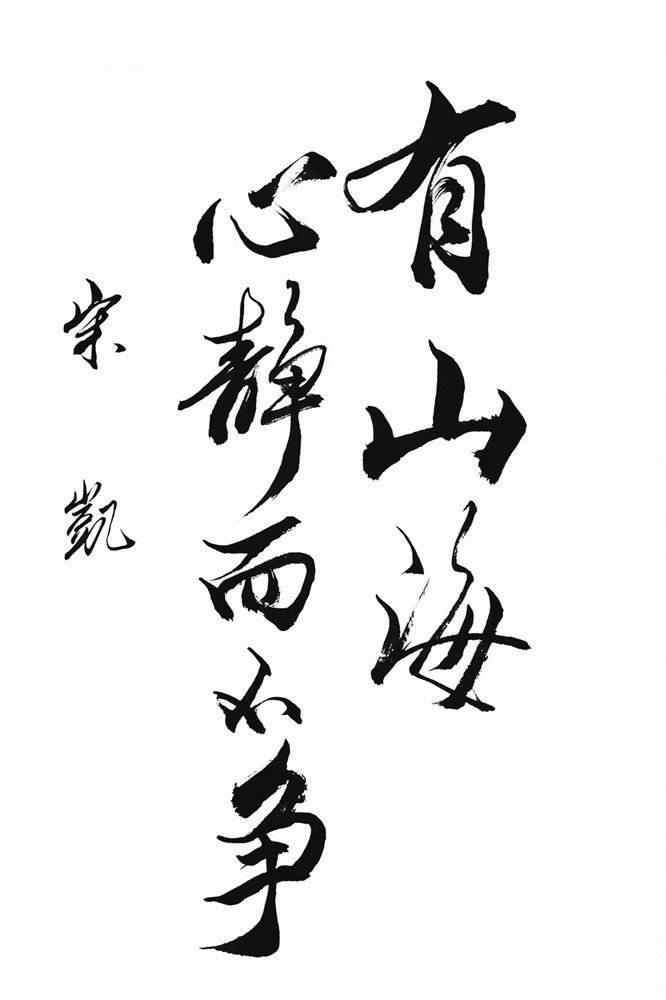 有山海
心静而不争
宋凯